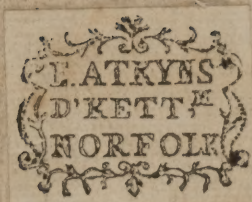 E. ATKYNS
D'KETT, M
NORFOLK